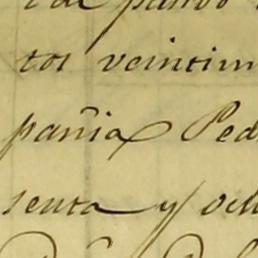 tos veintiun
pañia Ped
senta y och